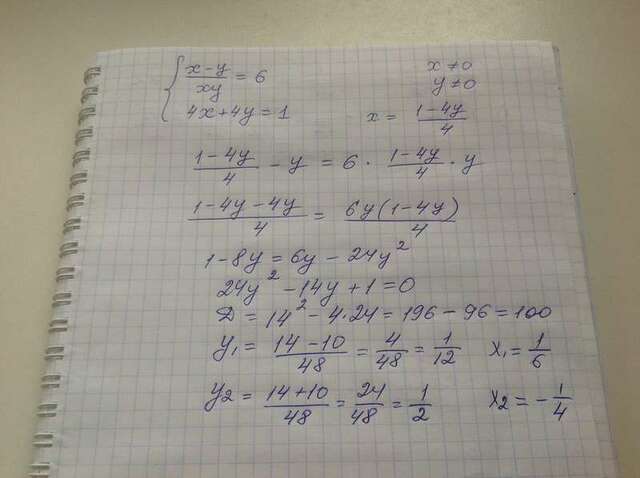 { (x-y)/(xy) = 6   x≠0
y≠0
4x+4y=1   x = (1-4y)/4
(1-4y)/4 - y = 6 · (1-4y)/4 · y
(1-4y-4y)/4 = 6y(1-4y)/4
1-8y = 6y - 24y²
24y² - 14y + 1 = 0
D = 14² - 4·24 = 196 - 96 = 100
y₁ = (14-10)/48 = 4/48 = 1/12   x₁ = 1/6
y₂ = (14+10)/48 = 24/48 = 1/2   x₂ = -1/4